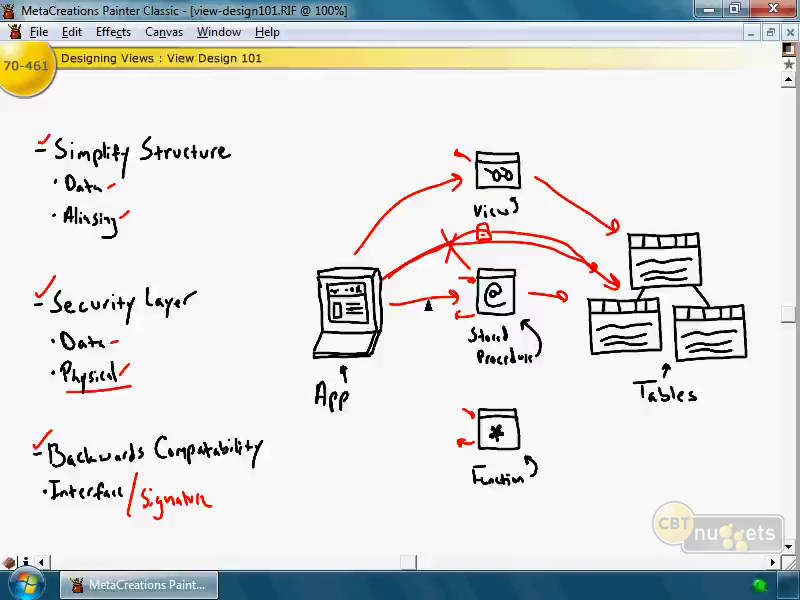 MetaCreations Painter Classic - [view-design101.RIF @ 100%]
File Edit Effects Canvas Window Help
70-461
Designing Views : View Design 101
- Simplify Structure
· Data
· Aliasing
- Security Layer
· Data
· Physical
- Backwards Compatability
· Interface / Signature
View
@
Stored
Procedure
App
Tables
*
Function
CBT nuggets
MetaCreations Paint...